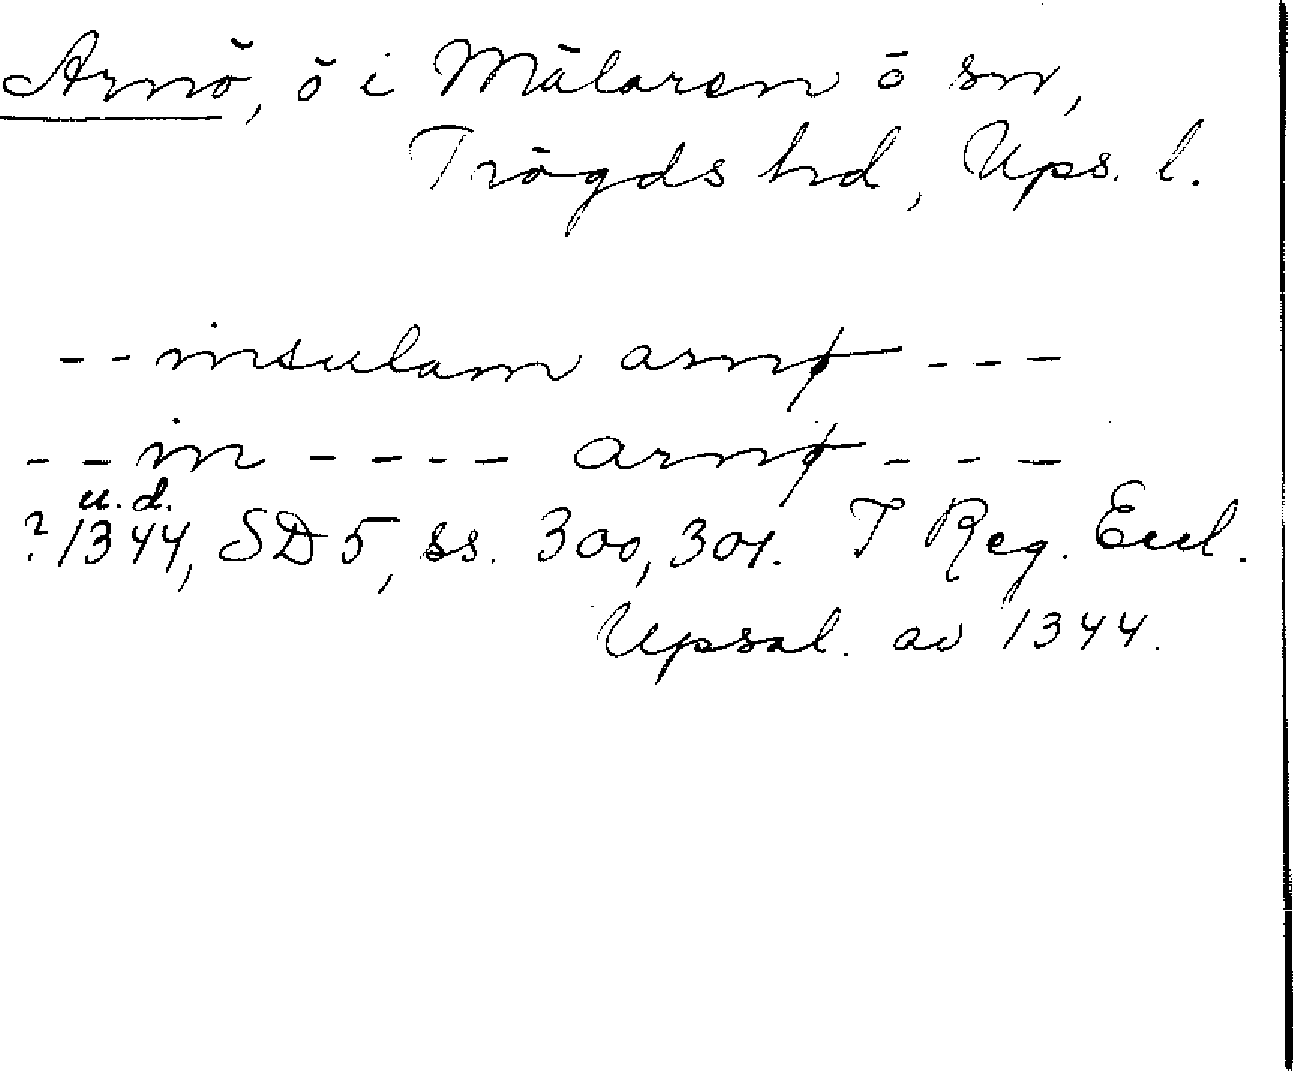 Arnö, ö i Mälaren o sn,
Trögds hd, Ups. l.
-- insulam arnø ---
-- in ---- arnø ---
u.d.
? 1344, SD 5, ss. 300, 301. T Reg. Eccl.
Upsal. av 1344.